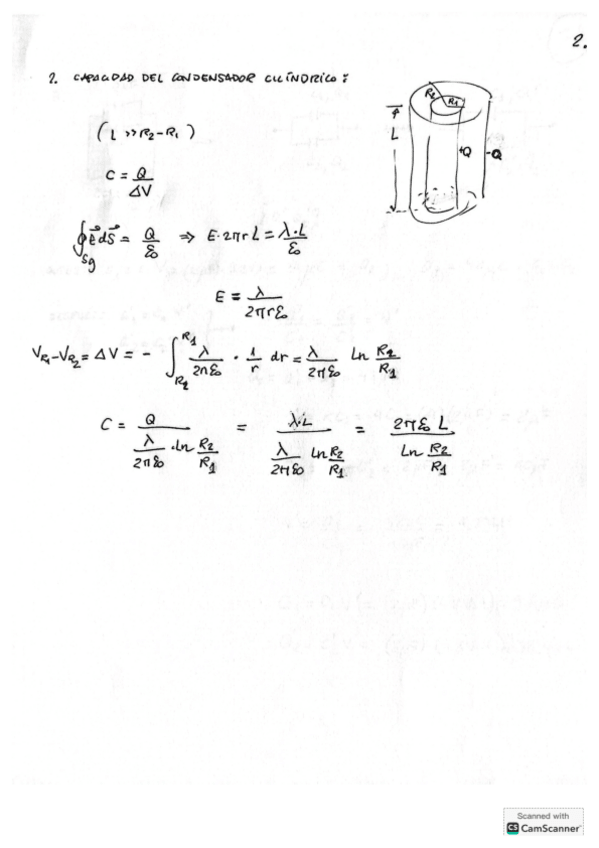 2.
2. CAPACIDAD DEL CONDENSADOR CILÍNDRICO:
(L >> R2-R1)
R2
R1
L
+Q
-Q
C = Q/ΔV
∮Sg E⃗ dS⃗ = Q/ε0 ⇒ E·2πrL = λ·L/ε0
E = λ/2πrε0
VR1-VR2 = ΔV = - ∫R2^R1 λ/2πε0 · 1/r dr = λ/2πε0 Ln R2/R1
C = Q/(λ/2πε0 · Ln R2/R1) = λ·L/(λ/2πε0 Ln R2/R1) = 2πε0 L/(Ln R2/R1)
Scanned with
CS CamScanner